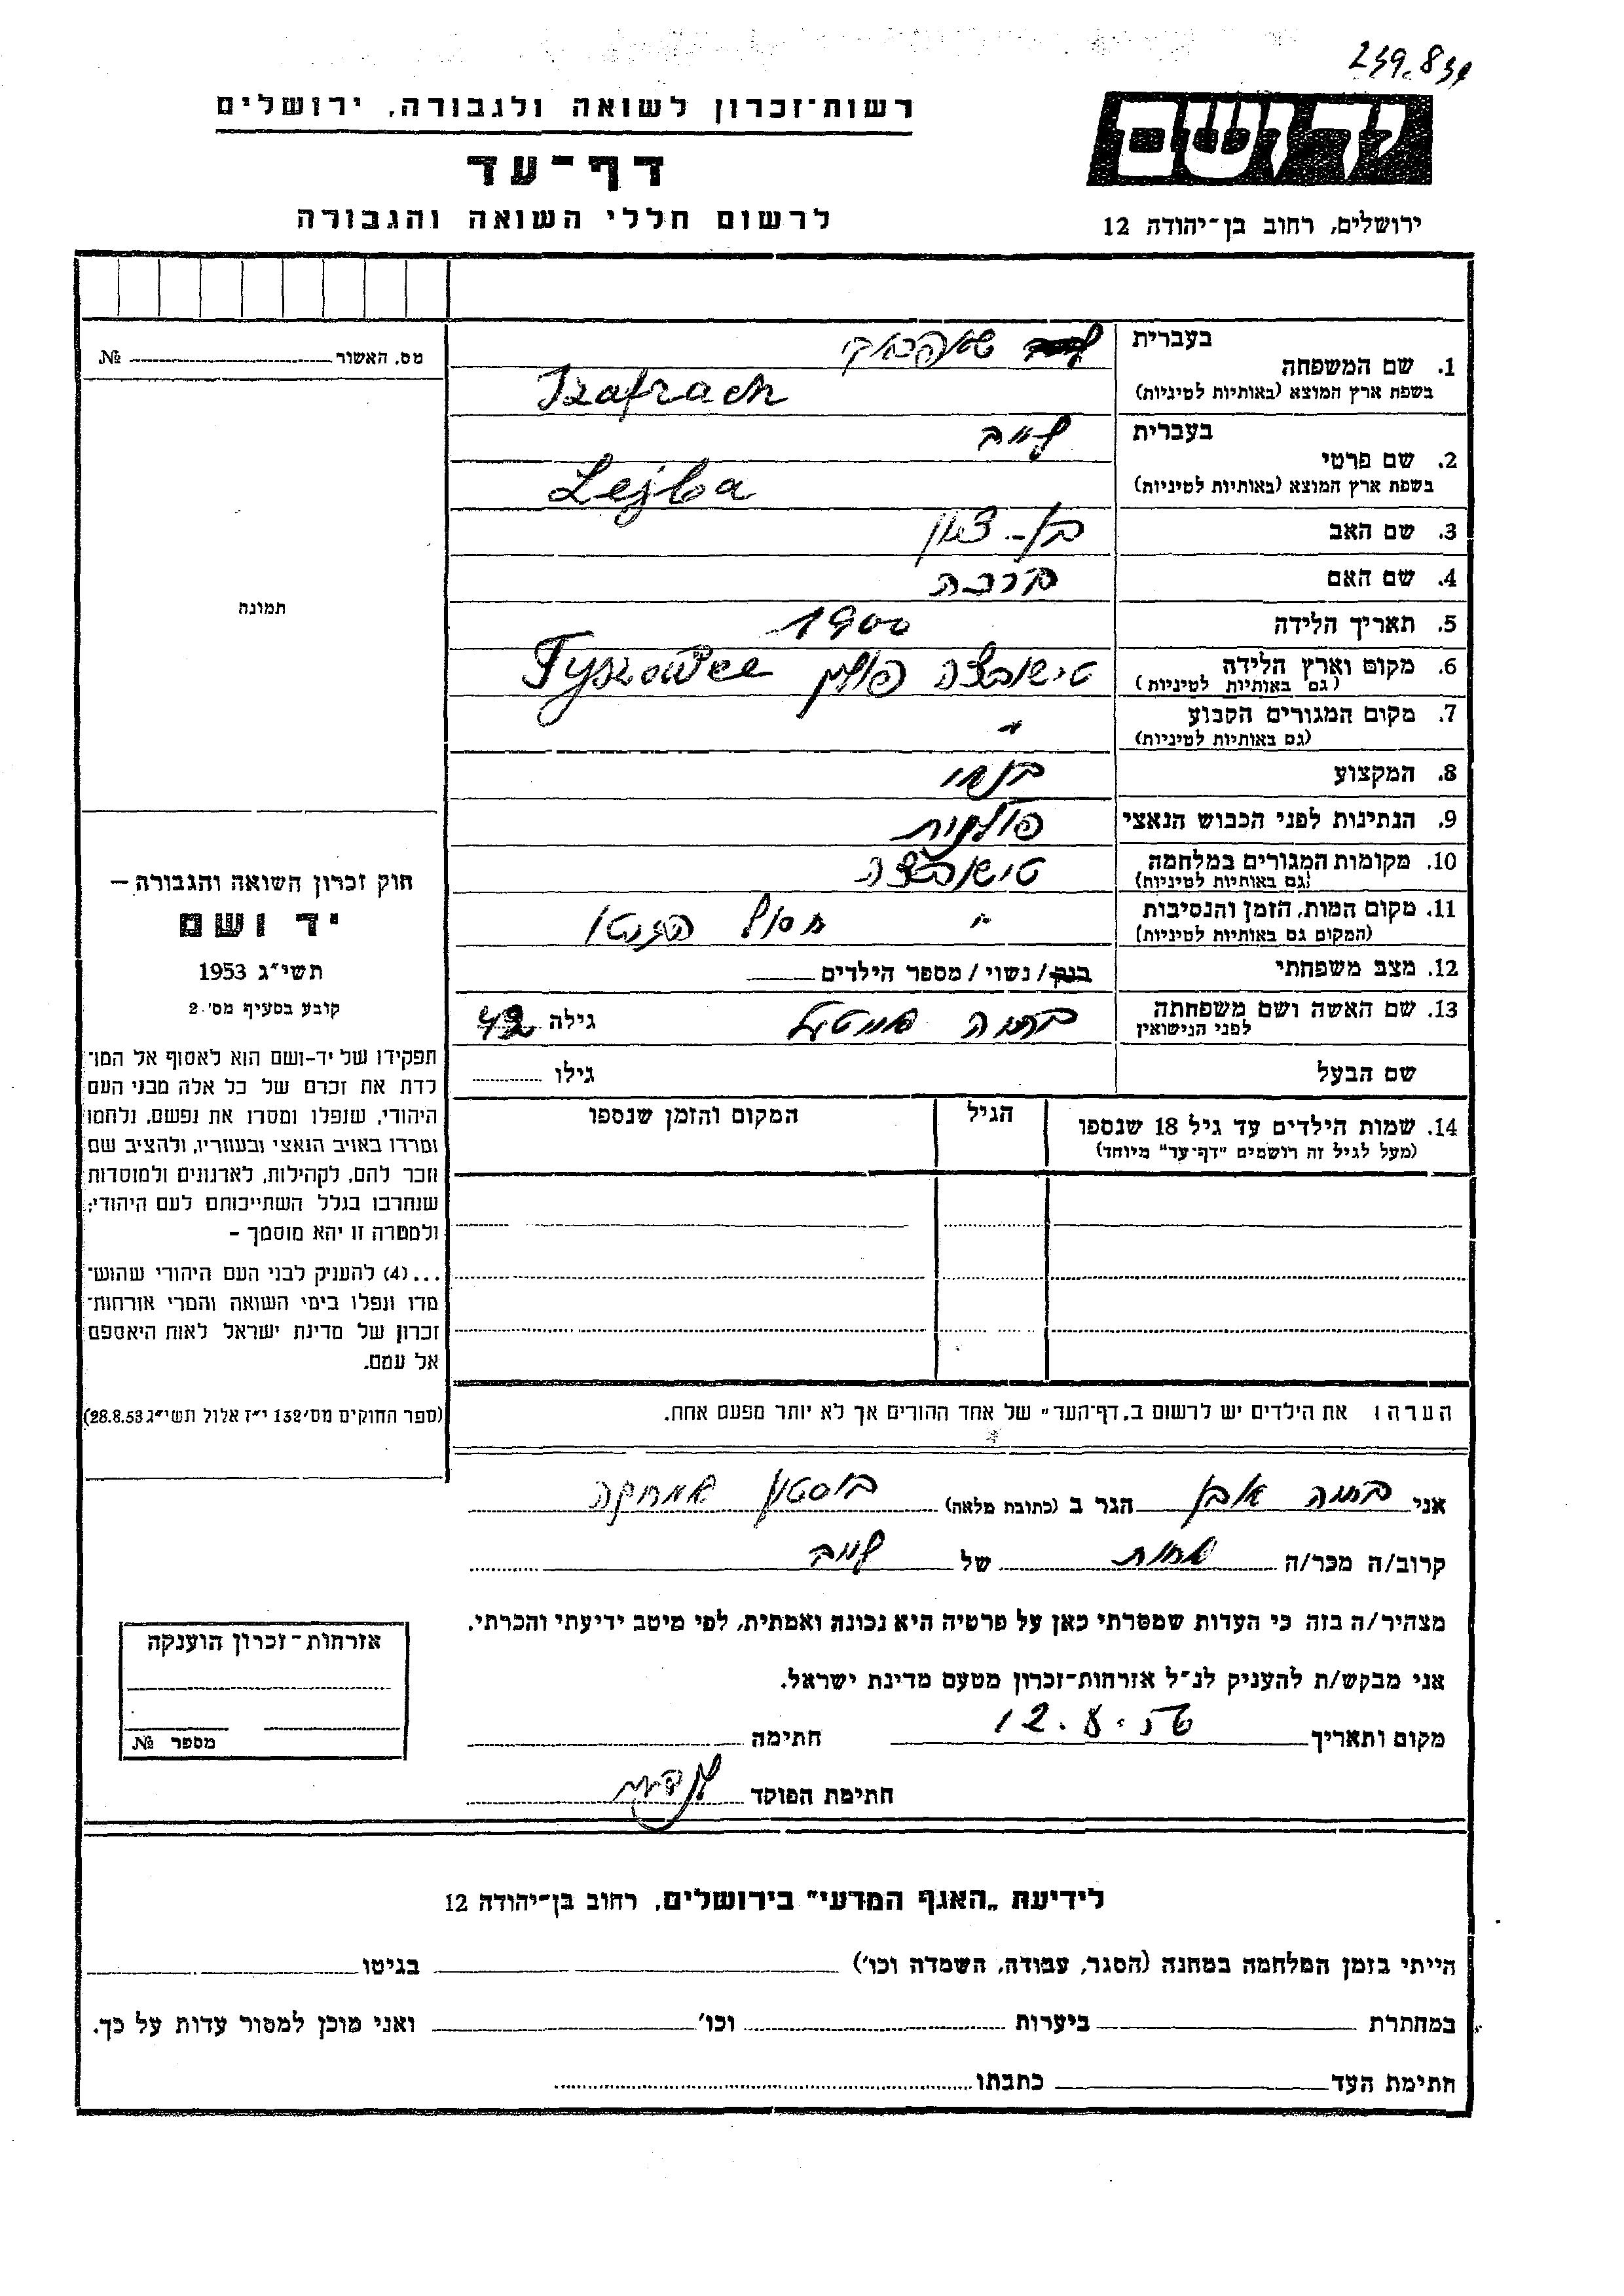 239.839
רשות־זכרון לשואה ולגבורה, ירושלים
דף־עד
לרשום חללי השואה והגבורה
יד ושם
ירושלים, רחוב בן־יהודה 12
מס. האשור № 
תמונה
חוק זכרון השואה והגבורה —
יד ושם
תשי״ג 1953
קובע בסעיף מס׳ 2
תפקידו של יד-ושם הוא לאסוף אל המו־
לדת את זכרם של כל אלה מבני העם
היהודי, שנפלו ומסרו את נפשם, נלחמו
ומרדו באויב הנאצי ובעוזריו, ולהציב שם
וזכר להם, לקהילות, לארגונים ולמוסדות
שנחרבו בגלל השתייכותם לעם היהודי;
ולמטרה זו יהא מוסמך —
...(4) להעניק לבני העם היהודי שהוש־
מדו ונפלו בימי השואה והמרי אזרחות־
זכרון של מדינת ישראל לאות היאספם
אל עמם.
(ספר החוקים מס׳ 132 י״ז אלול תשי״ג 28.8.53)
בעברית
1. שם המשפחה
בשפת ארץ המוצא (באותיות לטיניות) Szafrach
בעברית לייב
2. שם פרטי
בשפת ארץ המוצא (באותיות לטיניות) Lejba
3. שם האב בן-ציון
4. שם האם ברכה
5. תאריך הלידה 1900
6. מקום וארץ הלידה טישובצה פולין Tyszowce
(גם באותיות לטיניות)
7. מקום המגורים הקבוע
(גם באותיות לטיניות) ״
8. המקצוע
9. הנתינות לפני הכבוש הנאצי פולנית
10. מקומות המגורים במלחמה טישובצה
(גם באותיות לטיניות)
11. מקום המות, הזמן והנסיבות ״
(המקום גם באותיות לטיניות)
12. מצב משפחתי רווק/נשוי/מספר הילדים
13. שם האשה ושם משפחתה גילה 42
לפני הנישואין
שם הבעל גילו
14. שמות הילדים עד גיל 18 שנספו הגיל המקום והזמן שנספו
(מעל לגיל זה רושמים ״דף־עד״ מיוחד)
הערה: את הילדים יש לרשום ב„דף־העד״ של אחד ההורים אך לא יותר מפעם אחת.
אני הגר ב (כתובת מלאה) בוסטון אמריקה
קרוב/ה מכר/ה אחות של לייב
מצהיר/ה בזה כי העדות שמסרתי כאן על פרטיה היא נכונה ואמתית, לפי מיטב ידיעתי והכרתי.
אני מבקש/ת להעניק לנ״ל אזרחות־זכרון מטעם מדינת ישראל.
מקום ותאריך 12.8.56 חתימה
חתימת הפוקד
אזרחות־זכרון הוענקה
מספר №
לידיעת „האגף המדעי״ בירושלים, רחוב בן־יהודה 12
הייתי בזמן המלחמה במחנה (הסגר, עבודה, השמדה וכו׳) בגיטו
במחתרת ביערות וכו׳ ואני מוכן למסור עדות על כך.
חתימת העד כתבתו